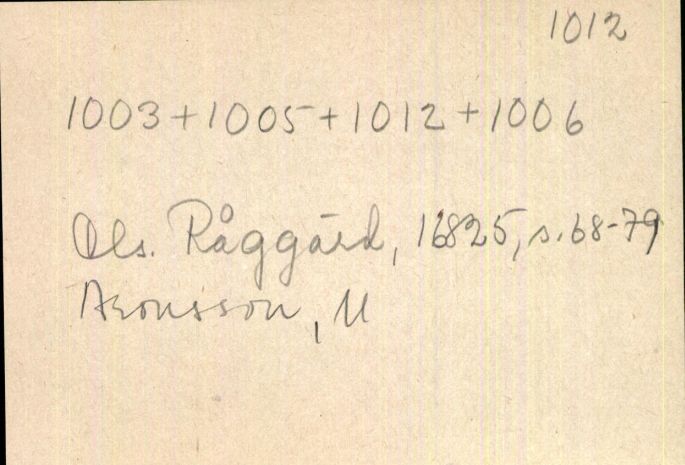 1012
1003+1005+1012+1006
Ols. Råggärd, 16825, s. 68-79
Aronsson, M